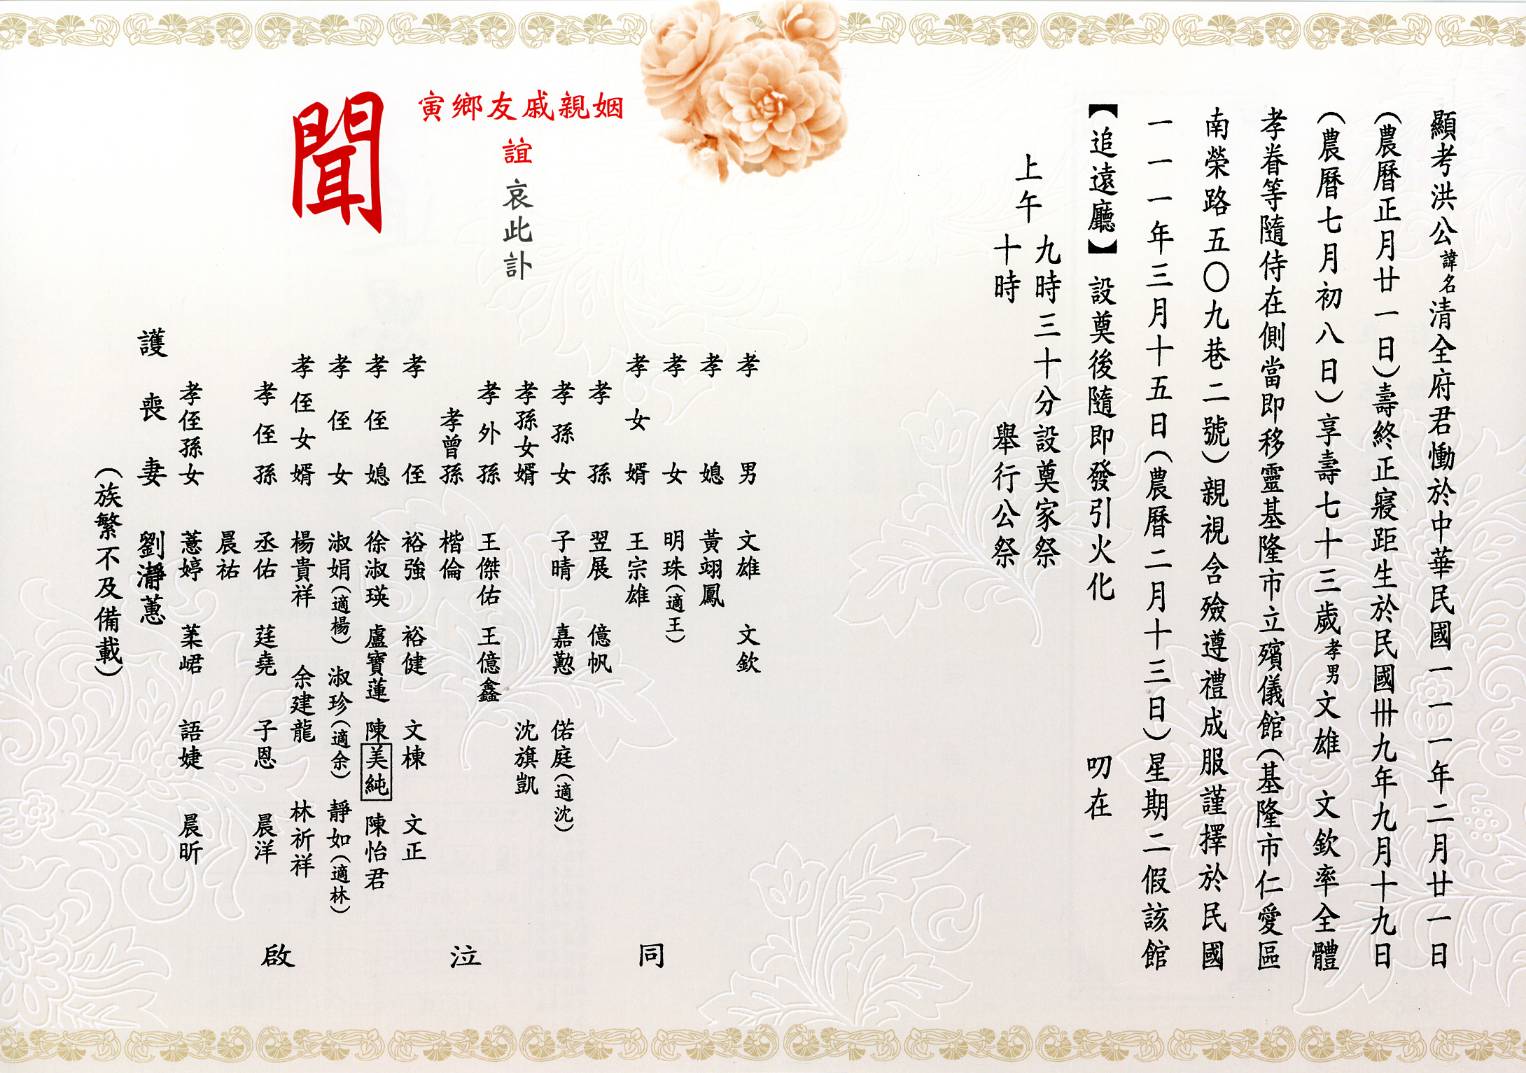 顯考洪公諱名清全府君慟於中華民國一一一年二月廿一日
(農曆正月廿一日)壽終正寢距生於民國卅九年九月十九日
(農曆七月初八日)享壽七十三歲孝男文雄 文欽率全體
孝眷等隨侍在側當即移靈基隆市立殯儀館(基隆市仁愛區
南榮路五〇九巷二號)親視含殮遵禮成服謹擇於民國
一一一年三月十五日(農曆二月十三日)星期二假該館
【追遠廳】設奠後隨即發引火化 叨在
上午 九時三十分設奠家祭
十時 舉行公祭
姻親戚友鄉寅
誼 哀此訃
聞
孝男 文雄 文欽
孝媳 黃翊鳳
孝女 明珠(適王)
孝女婿 王宗雄
孝孫 翌展 億帆
孝孫女 子晴 嘉懃 偌庭(適沈)
孝孫女婿 沈旗凱
孝外孫 王傑佑 王億鑫
孝曾孫 楷倫
孝侄 裕強 裕健 文棟 文正
孝侄媳 徐淑瑛 盧寶蓮 陳美純 陳怡君
孝侄女 淑娟(適楊) 淑珍(適余) 靜如(適林)
孝侄女婿 楊貴祥 余建龍 林祈祥
孝侄孫 丞佑 莛堯 子恩 晨洋
晨祐
孝侄孫女 蕙婷 峮 語婕 晨昕
護喪妻 劉瀞蕙
(族繁不及備載)
同 泣 啟